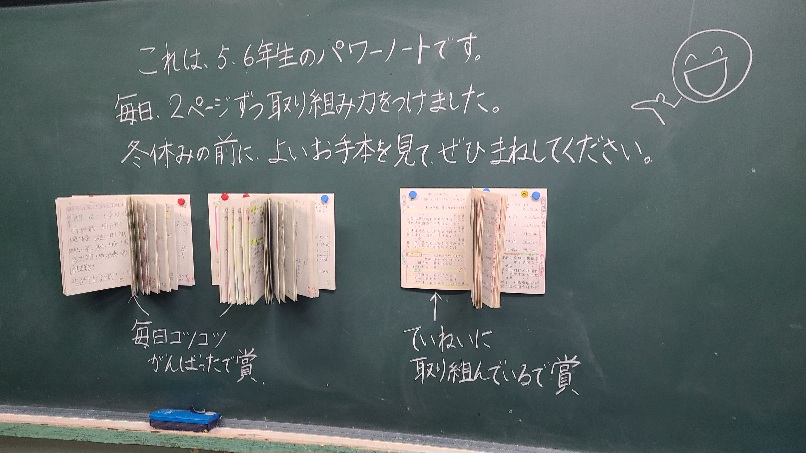 これは、5、6年生のパワーノートです。
毎日、2ページずつ取り組み力をつけました。
冬休みの前に、よいお手本を見て、ぜひまねしてください。
毎日コツコツ
がんばったで賞
ていねいに
取り組んでいるで賞